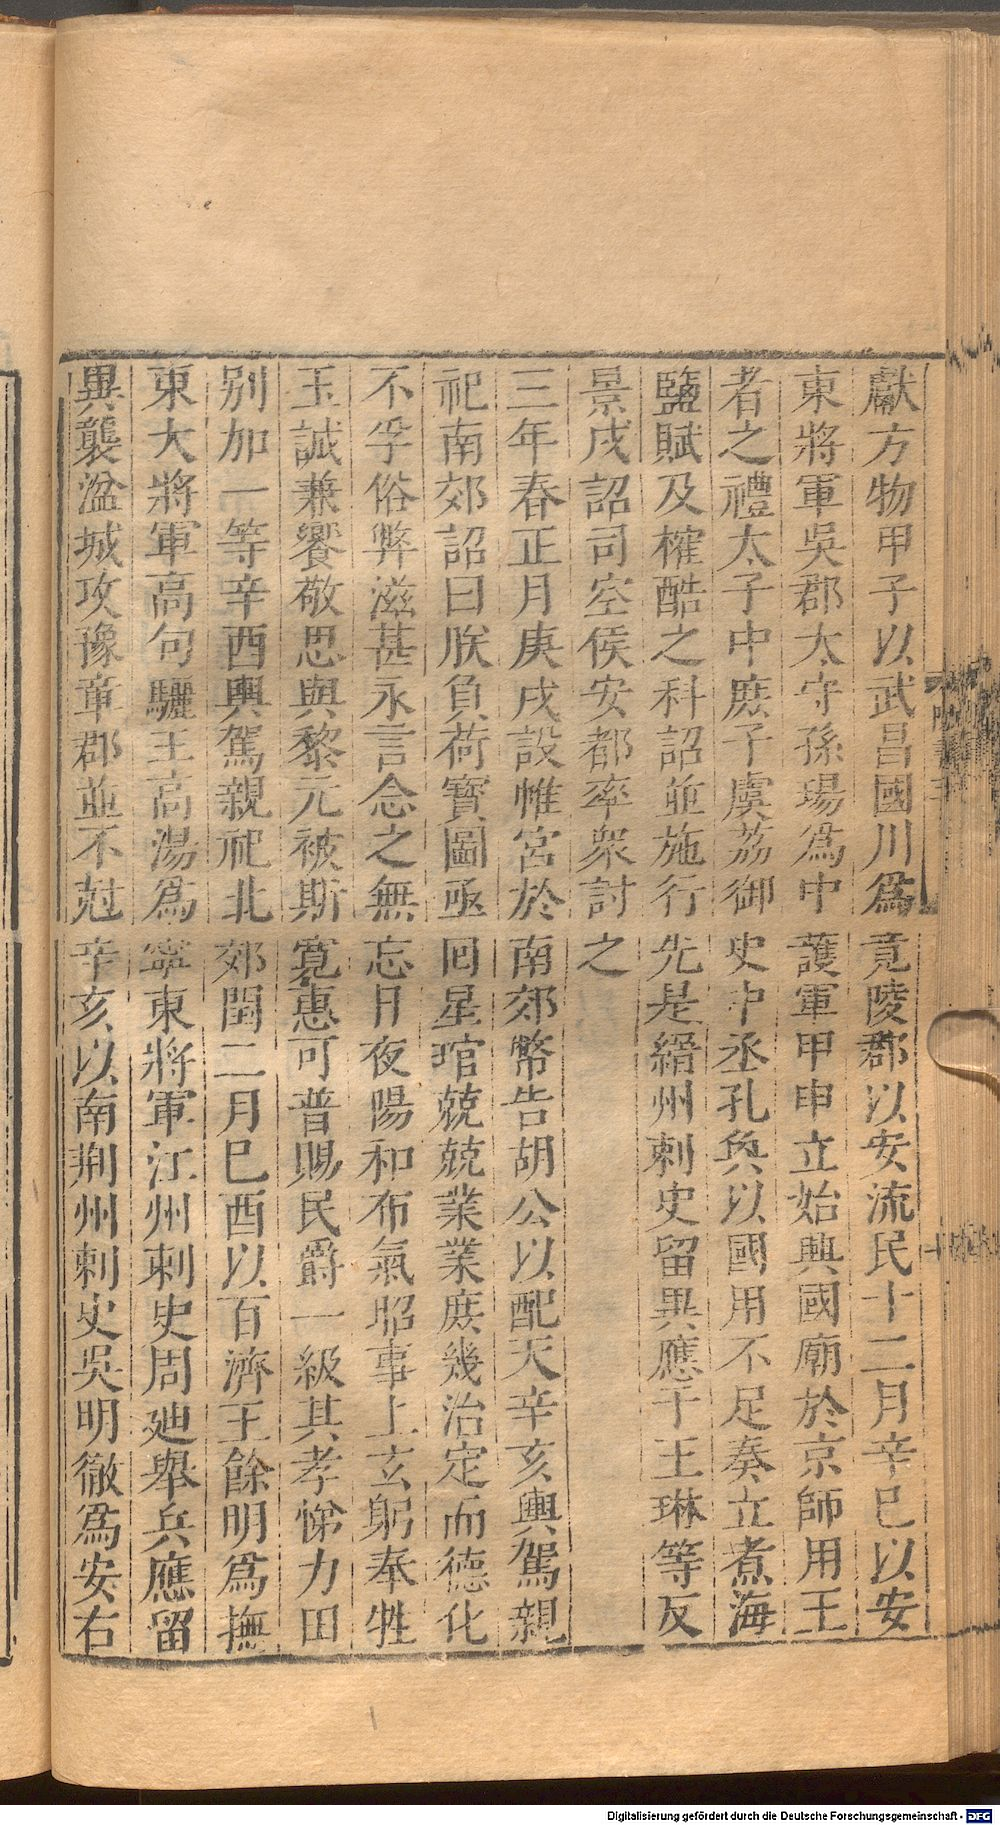 獻方物甲子以武昌國川爲竟陵郡以安流民十二月辛巳以安
東將軍吳郡太守孫瑒爲中護軍甲申立始興國廟於京師用王
者之禮太子中庶子虞荔御史中丞孔奐以國用不足奏立煮海
鹽賦及榷酤之科詔並施行先是縉州刺史留異應于王琳等反
景戌詔司空侯安都率衆討之
三年春正月庚戌設帷宮於南郊幣告胡公以配天辛亥輿駕親
祀南郊詔曰朕負荷寶圖亟回星琯兢兢業業庶幾治定而德化
不孚俗弊滋甚永言念之無忘日夜陽和布氣昭事上玄躬奉牲
玉誠兼饗敬思與黎元被斯寬惠可普賜民爵一級其孝悌力田
别加一等辛酉輿駕親祀北郊閏二月巳酉以百濟王餘明爲撫
東大將軍高句驪王高湯爲寧東將軍江州刺史周迪舉兵應留
異襲湓城攻豫章郡並不尅辛亥以南荆州刺史吳明徹爲安右
Digitalisierung gefördert durch die Deutsche Forschungsgemeinschaft - DFG